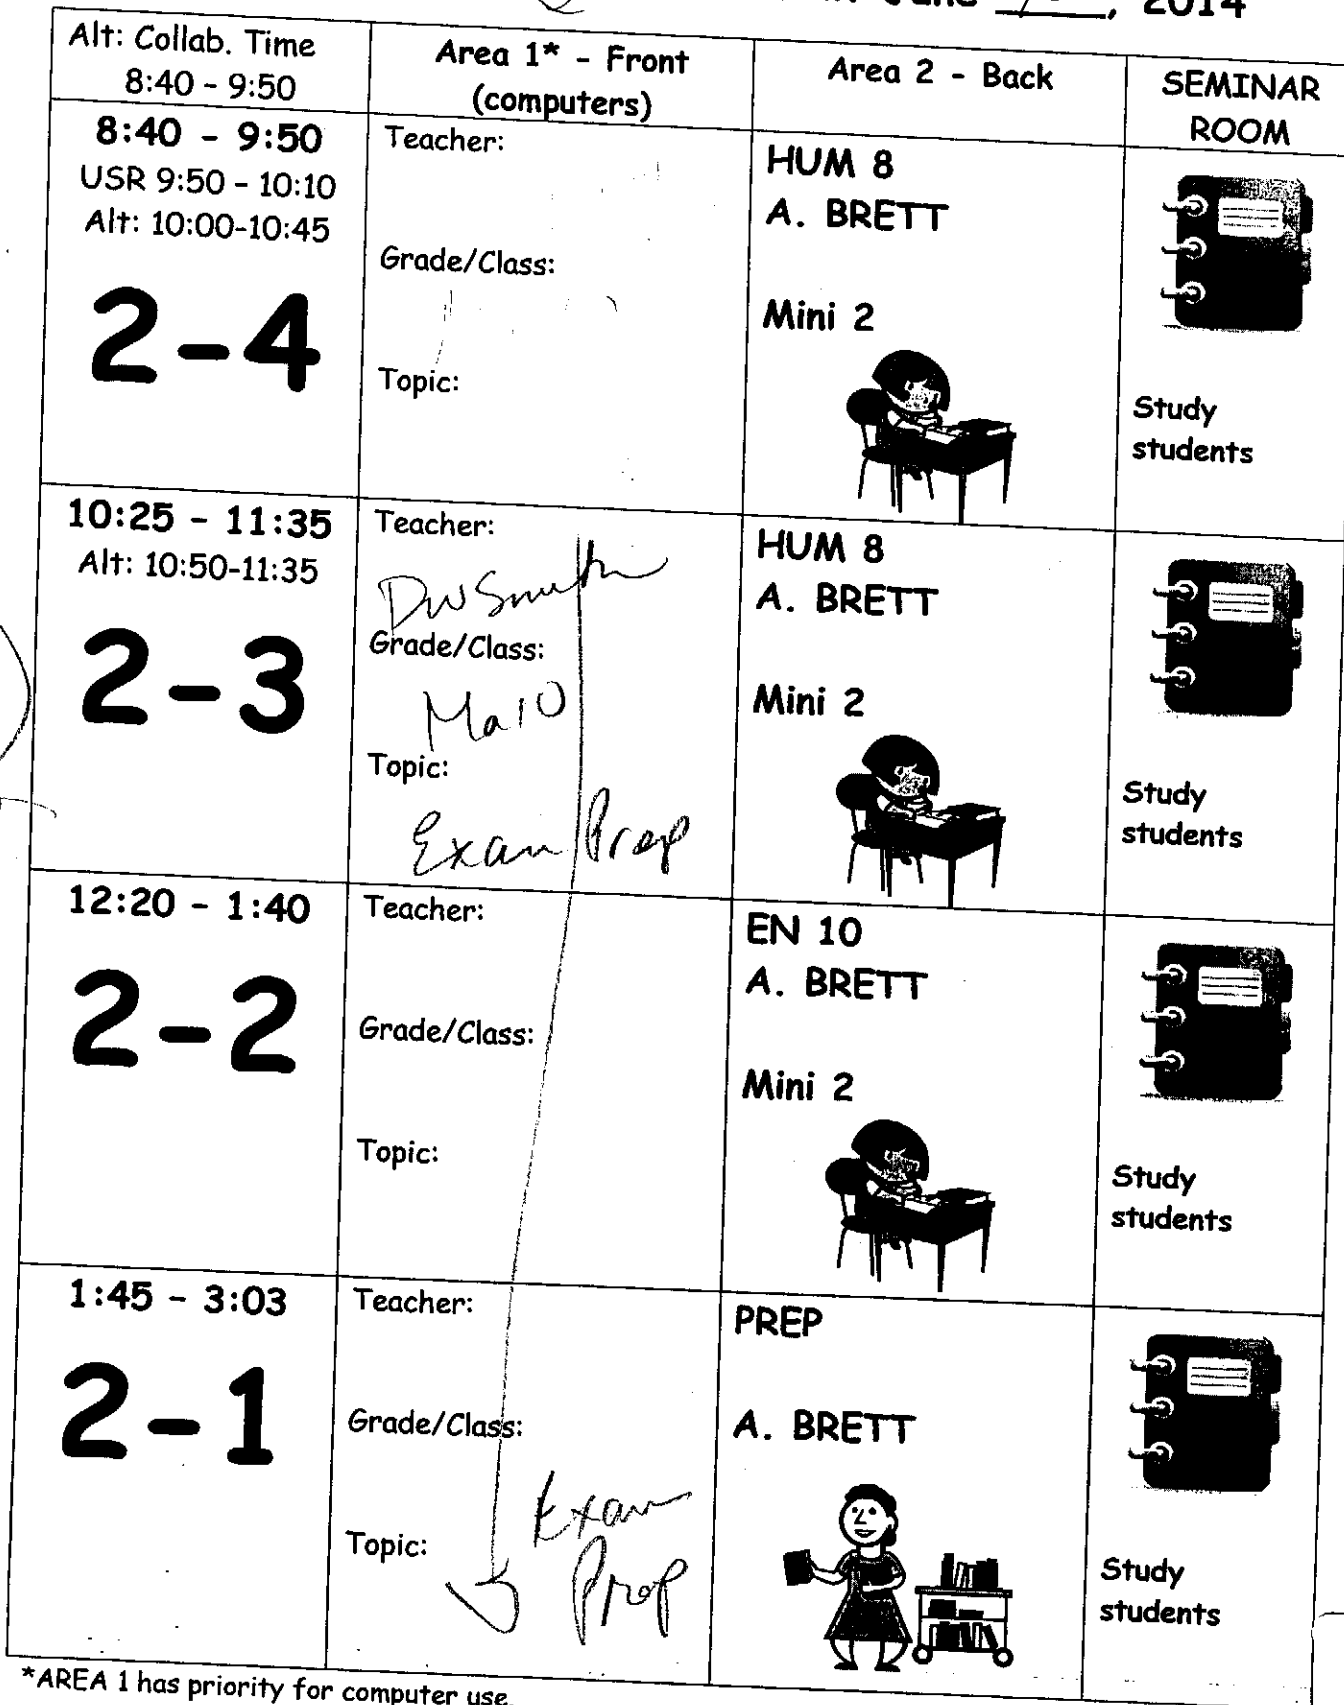 June , 2014
Alt: Collab. Time
8:40 - 9:50
Area 1* - Front
(computers)
Area 2 - Back
SEMINAR
ROOM
8:40 - 9:50
USR 9:50 - 10:10
Alt: 10:00-10:45
2-4
Teacher:
Grade/Class:
Topic:
HUM 8
A. BRETT
Mini 2
Study
students
10:25 - 11:35
Alt: 10:50-11:35
2-3
Teacher:
DW Smith
Grade/Class:
Ma10
Topic:
Exam Prep
HUM 8
A. BRETT
Mini 2
Study
students
12:20 - 1:40
2-2
Teacher:
Grade/Class:
Topic:
EN 10
A. BRETT
Mini 2
Study
students
1:45 - 3:03
2-1
Teacher:
Grade/Class:
Topic:
Exam
Prep
PREP
A. BRETT
Study
students
*AREA 1 has priority for computer use.